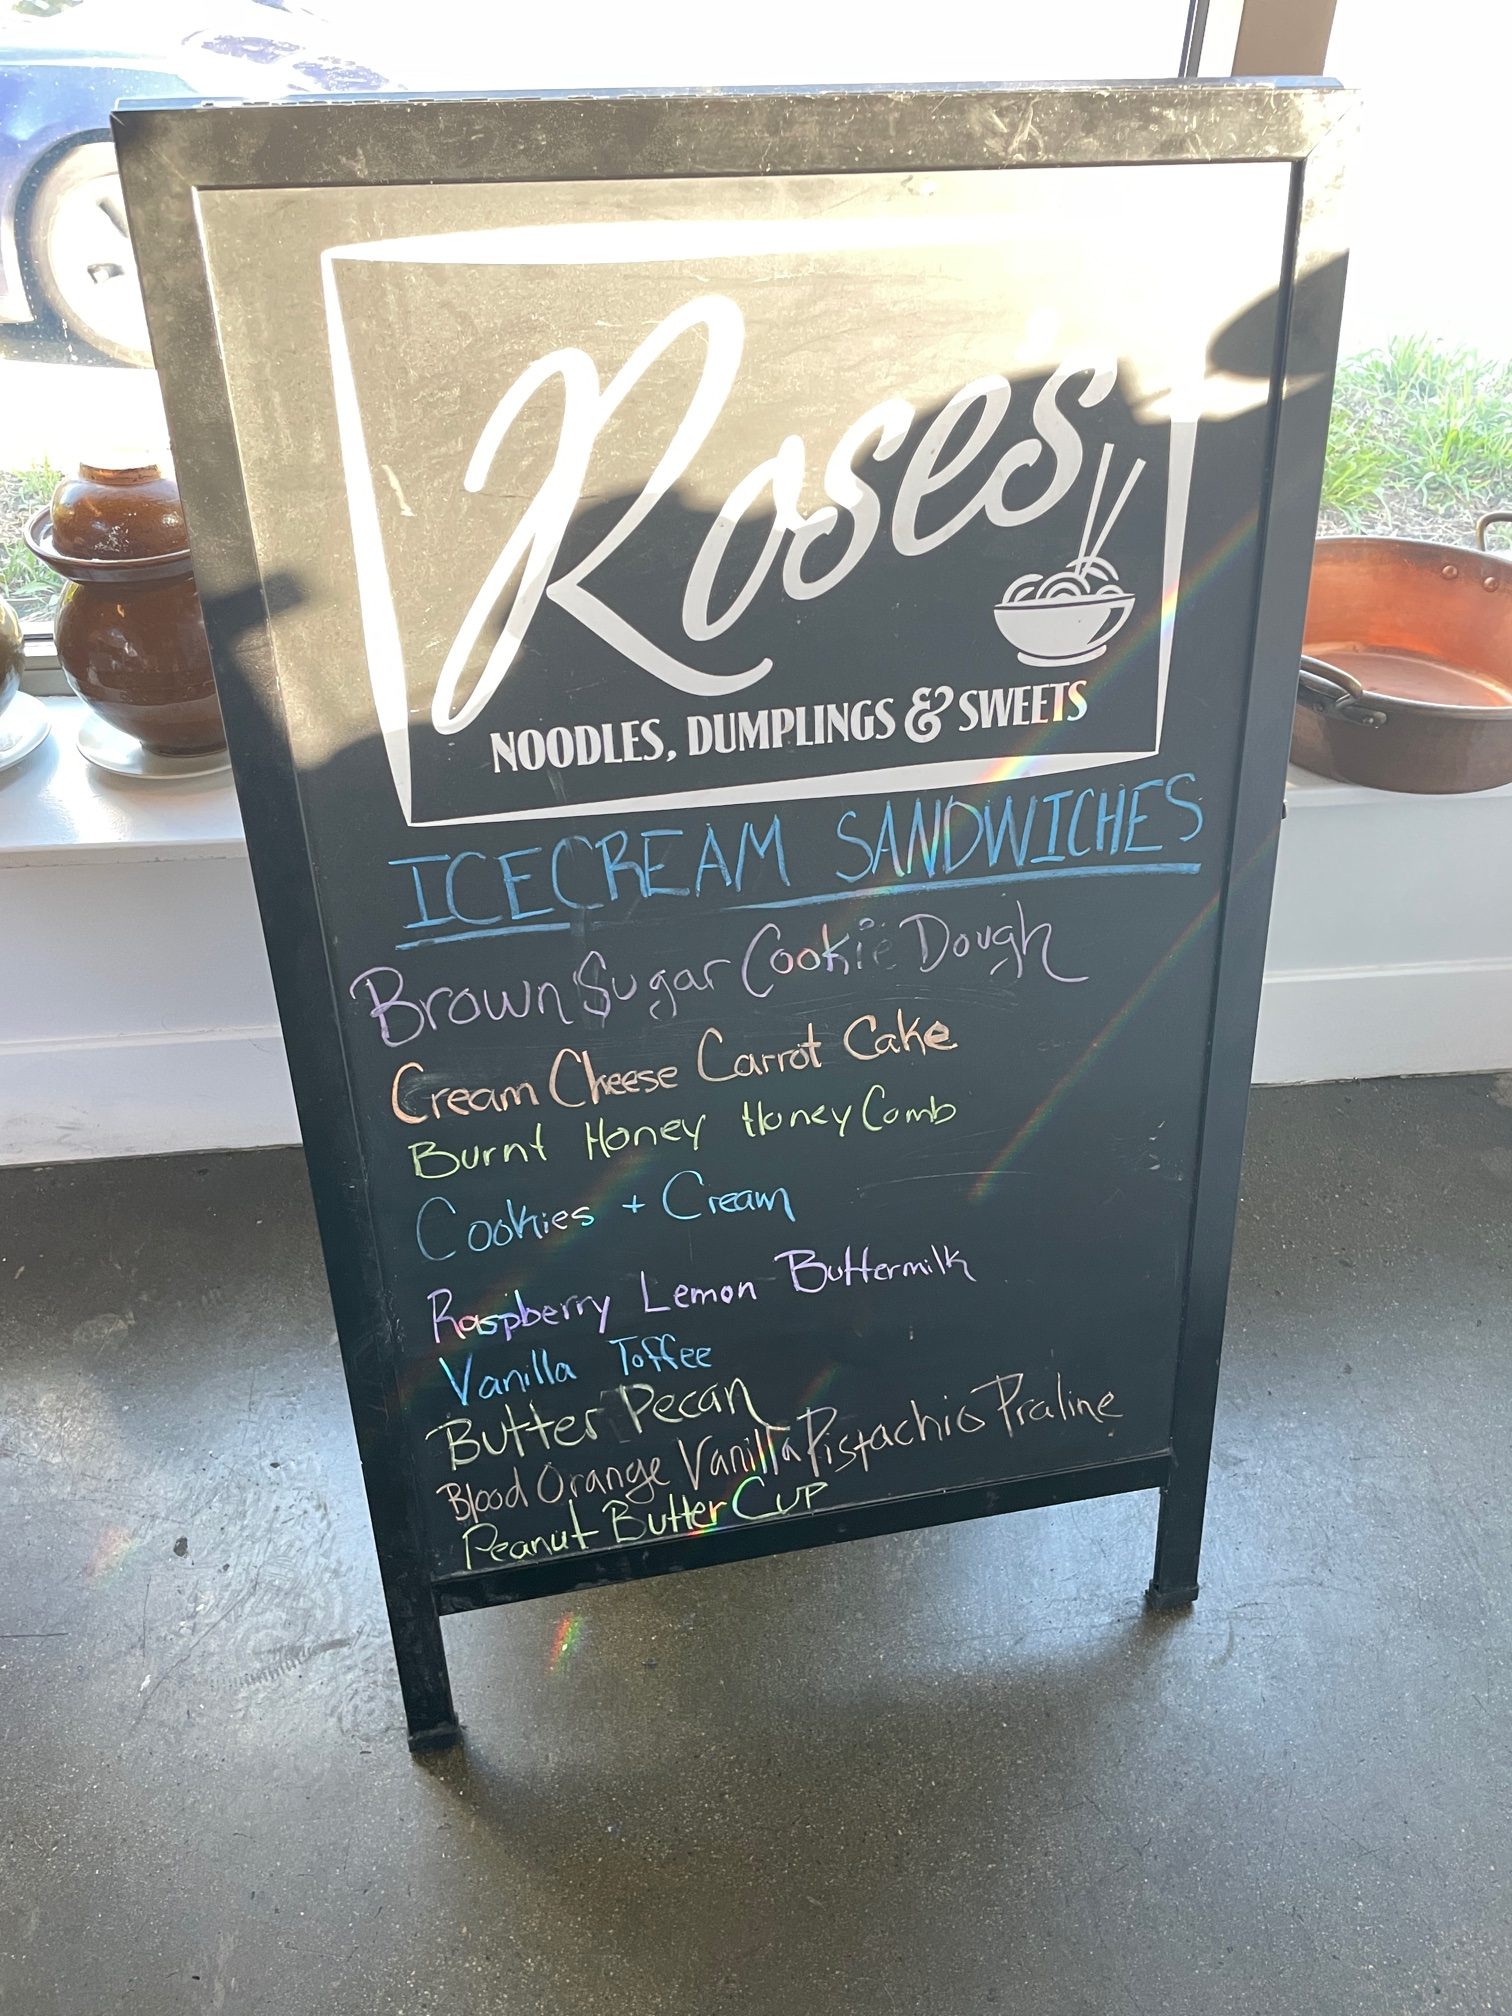 Rose's
NOODLES, DUMPLINGS & SWEETS
ICECREAM SANDWICHES
Brown Sugar Cookie Dough
Cream Cheese Carrot Cake
Burnt Honey Honey Comb
Cookies + Cream
Raspberry Lemon Buttermilk
Vanilla Toffee
Butter Pecan
Blood Orange Vanilla Pistachio Praline
Peanut Butter Cup